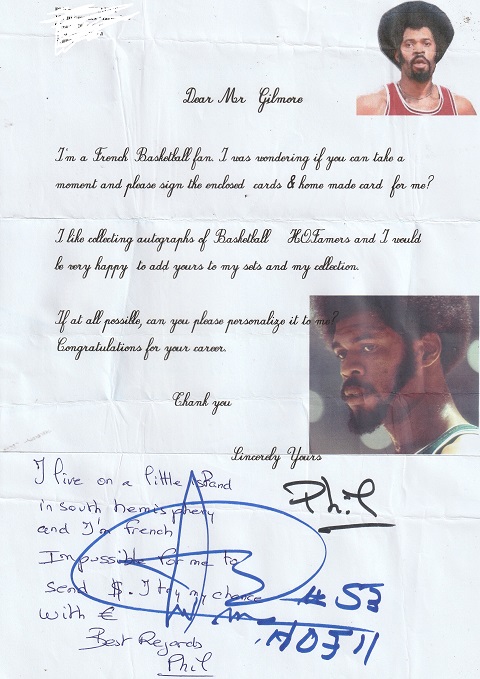 Dear Mr Gilmore
I'm a French Basketball fan. I was wondering if you can take a
moment and please sign the enclosed cards & home made card for me?
I like collecting autographs of Basketball HOFamers and I would
be very happy to add yours to my sets and my collection.
If at all possible, can you please personalize it to me?
Congratulations for your career.
Thank you
Sincerely Yours
Phil
I live on a little island
in south hemisphery
and I'm french
Impossible for me to
send $. I try my chance
with €
Best Regards
Phil
# 53
HOF 11